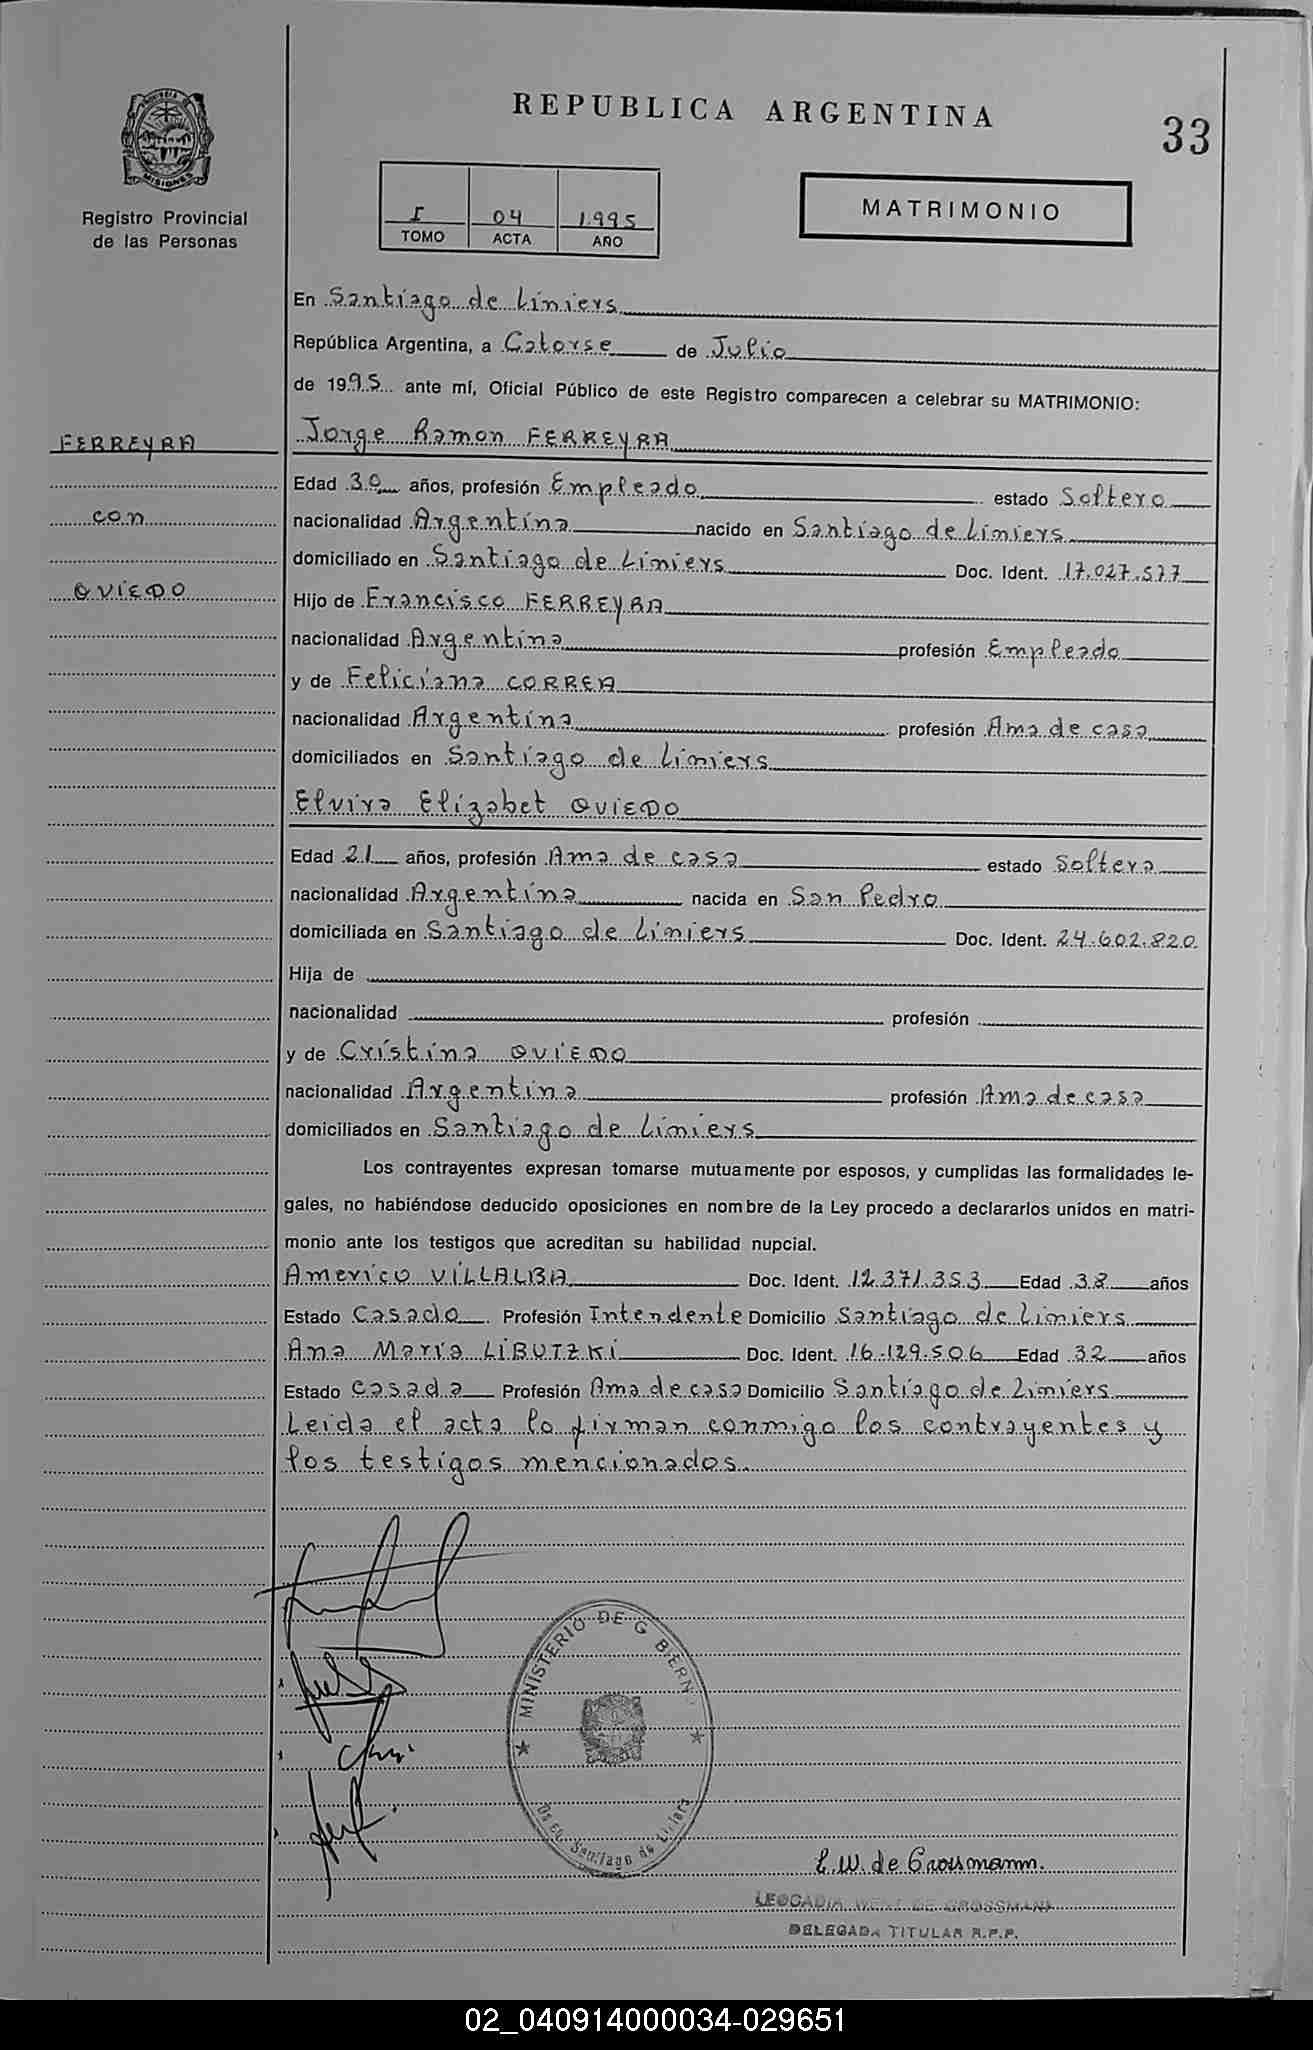 REPUBLICA ARGENTINA
33
PROVINCIA DE MISIONES
Registro Provincial
de las Personas
I 04 1995
TOMO ACTA AÑO
MATRIMONIO
En Santiago de Liniers
República Argentina, a Catorse de Julio
de 1995 ante mí, Oficial Público de este Registro comparecen a celebrar su MATRIMONIO:
FERREYRA
con
OVIEDO
Jorge Ramon FERREYRA
Edad 30 años, profesión Empleado estado Soltero
nacionalidad Argentina nacido en Santiago de Liniers
domiciliado en Santiago de Liniers Doc. Ident. 17.027.577
Hijo de Francisco FERREYRA
nacionalidad Argentina profesión Empleado
y de Feliciana CORREA
nacionalidad Argentina profesión Ama de casa
domiciliados en Santiago de Liniers
Elvira Elizabet OVIEDO
Edad 21 años, profesión Ama de casa estado Soltera
nacionalidad Argentina nacida en San Pedro
domiciliada en Santiago de Liniers Doc. Ident. 24.602.820
Hija de
nacionalidad profesión
y de Cristina OVIEDO
nacionalidad Argentina profesión Ama de casa
domiciliados en Santiago de Liniers
Los contrayentes expresan tomarse mutuamente por esposos, y cumplidas las formalidades le-
gales, no habiéndose deducido oposiciones en nombre de la Ley procedo a declararlos unidos en matri-
monio ante los testigos que acreditan su habilidad nupcial.
Americo VILLALBA Doc. Ident. 12.371.353 Edad 38 años
Estado Casado Profesión Intendente Domicilio Santiago de Liniers
Ana María LIBUTZKI Doc. Ident. 16.129.506 Edad 32 años
Estado Casada Profesión Ama de casa Domicilio Santiago de Liniers
Leida el acta lo firman conmigo los contrayentes y
los testigos mencionados.
MINISTERIO DE G BIERNO
Santiago de Liniers
L. W. de Grossmann.
LEOCADIA WENT DE GROSSMANN
DELEGADA TITULAR R.P.P.
02_040914000034-029651